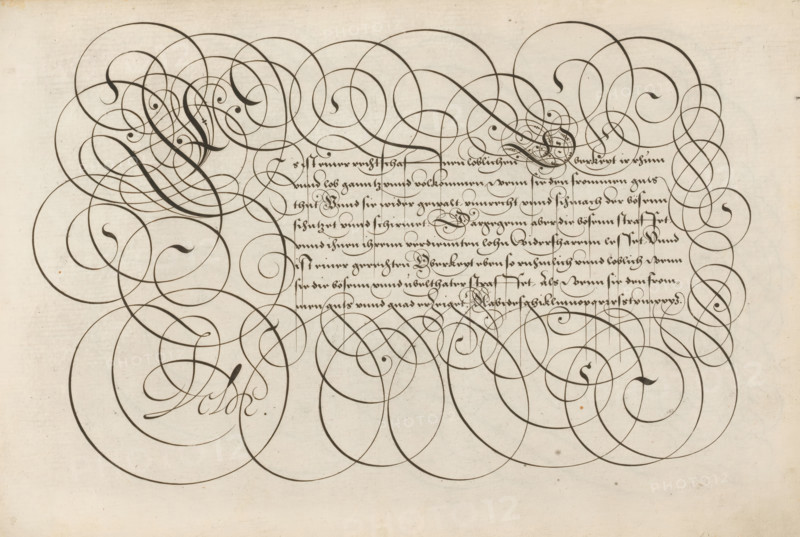 Es ist einer rechtschaffnen loblichen Oberkeyt ir rhum
vnnd lob ganntz vnnd volkommen, wenn sie den frommen guts
thut Vnnd sie wider gewalt vnrecht vnnd schmach der bosenn
schutzet vnnd schirmet Dargegenn aber die bosenn straffet
vnnd ihnen ihrenn verdiennten lohn widerfharenn lesset Vnnd
ist einer gerechten Oberkeyt eben so ruhmlich vnnd loblich Wenn
sie die bosenn vnnd ubelthater straffet. Als Wenn sie den from,,
men guts vnnd gnad erzeiget.